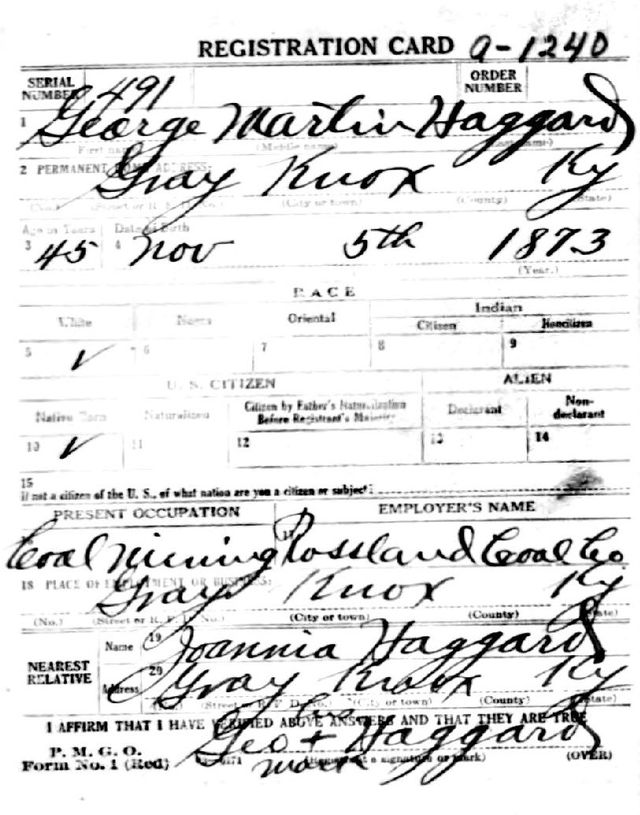 REGISTRATION CARD a-1240
SERIAL NUMBER 491 ORDER NUMBER
1 George Martin Haggard
First name (Middle name) (Last name)
2 PERMANENT HOME ADDRESS:
Gray Knox Ky
(No.) (Street or R. F. D. No.) (City or town) (County) (State)
Age in Years Date of Birth
3 45 4 Nov 5th 1873
(Year.)
RACE
White Negro Oriental Indian
Citizen Noncitizen
5 ✓ 6 7 8 9
U. S. CITIZEN ALIEN
Native Born Naturalized Citizen by Father's Naturalization Before Registrant's Majority Declarant Non-declarant
10 ✓ 11 12 13 14
15
If not a citizen of the U. S., of what nation are you a citizen or subject?
PRESENT OCCUPATION EMPLOYER'S NAME
Coal Mining 17 Rossland Coal Co
18 PLACE OF EMPLOYMENT OR BUSINESS:
Gray Knox Ky
(No.) (Street or R. F. D. No.) (City or town) (County) (State)
NEAREST RELATIVE Name 19 Joannia Haggard
Address 20 Gray Knox Ky
(No.) (Street or R. F. D. No.) (City or town) (County) (State)
I AFFIRM THAT I HAVE VERIFIED ABOVE ANSWERS AND THAT THEY ARE TRUE
P. M. G. O.
Form No. 1 (Red) Geo + Haggard
mark (Registrant's signature or mark) (OVER)